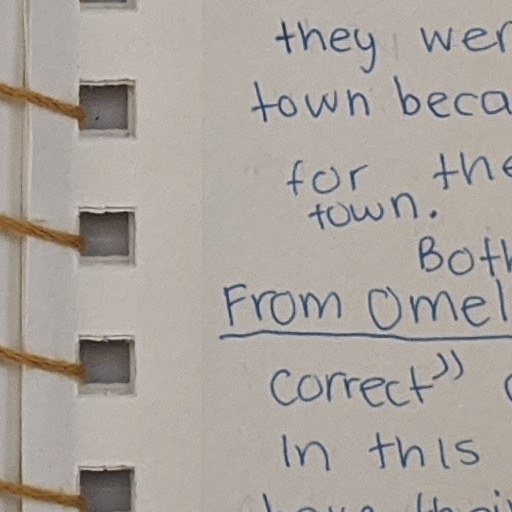 they wer
town beca
for the
town.
Both
From Omel
correct"
In this